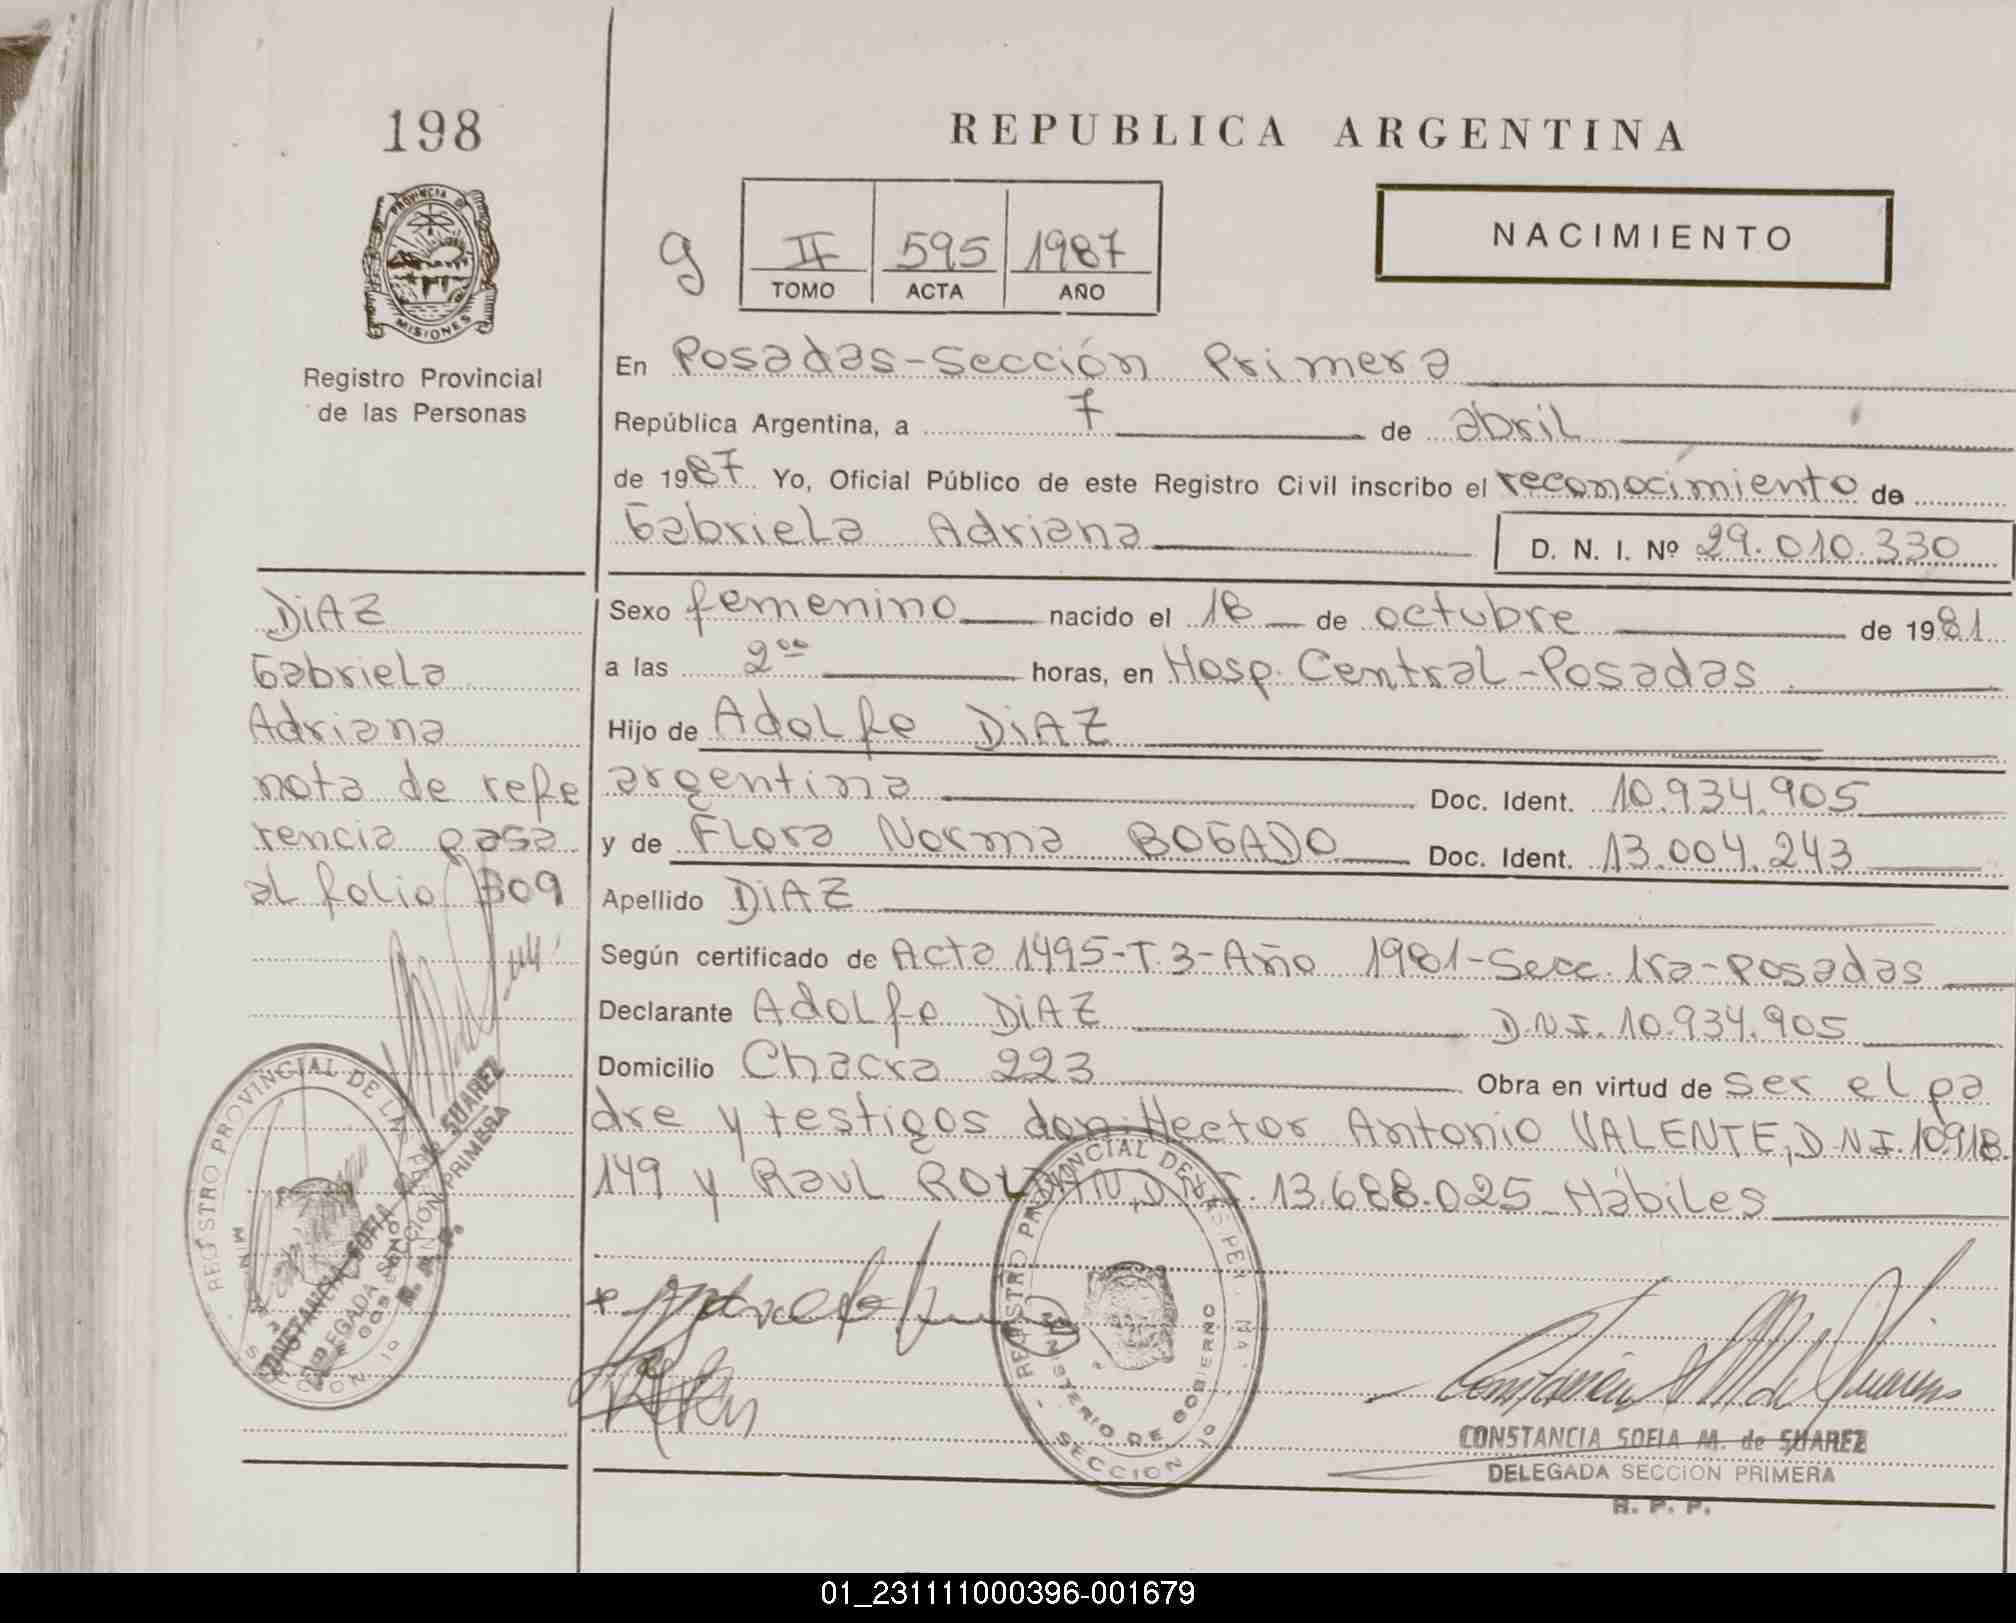 198
REPUBLICA ARGENTINA
PROVINCIA DE
MISIONES
Registro Provincial
de las Personas
g
II 595 1987
TOMO ACTA AÑO
NACIMIENTO
En Posadas-Sección Primera
República Argentina, a 7 de abril
de 1987 Yo, Oficial Público de este Registro Civil inscribo el reconocimiento de
Gabriela Adriana
D. N. I. Nº 29.010.330
DiAZ
Gabriela
Adriana
nota de refe
rencia pasa
al folio 309
Sexo femenino nacido el 18 de octubre de 1981
a las 2⁰⁰ horas, en Hosp. Central-Posadas
Hijo de Adolfo DiAZ
argentina Doc. Ident. 10.934.905
y de Flora Norma BOGADO Doc. Ident. 13.004.243
Apellido DiAZ
Según certificado de Acta 1495-T.3-Año 1981-Secc. 1ra-Posadas
Declarante Adolfo DiAZ D.N.I. 10.934.905
Domicilio Chacra 223 Obra en virtud de ser el pa
dre y testigos don Hector Antonio VALENTE, D.N.I. 10.918.
149 y Raul D.N.I. 13.688.025 Hábiles
REGISTRO PROVINCIAL DE LAS
SUAREZ
SECCION PRIMERA
REGISTRO PROVINCIAL DE LAS PER
MINISTERIO DE GOBIERNO
SECCION
CONSTANCIA SOFIA M. de SUAREZ
DELEGADA SECCION PRIMERA
R. P. P.
01_231111000396-001679